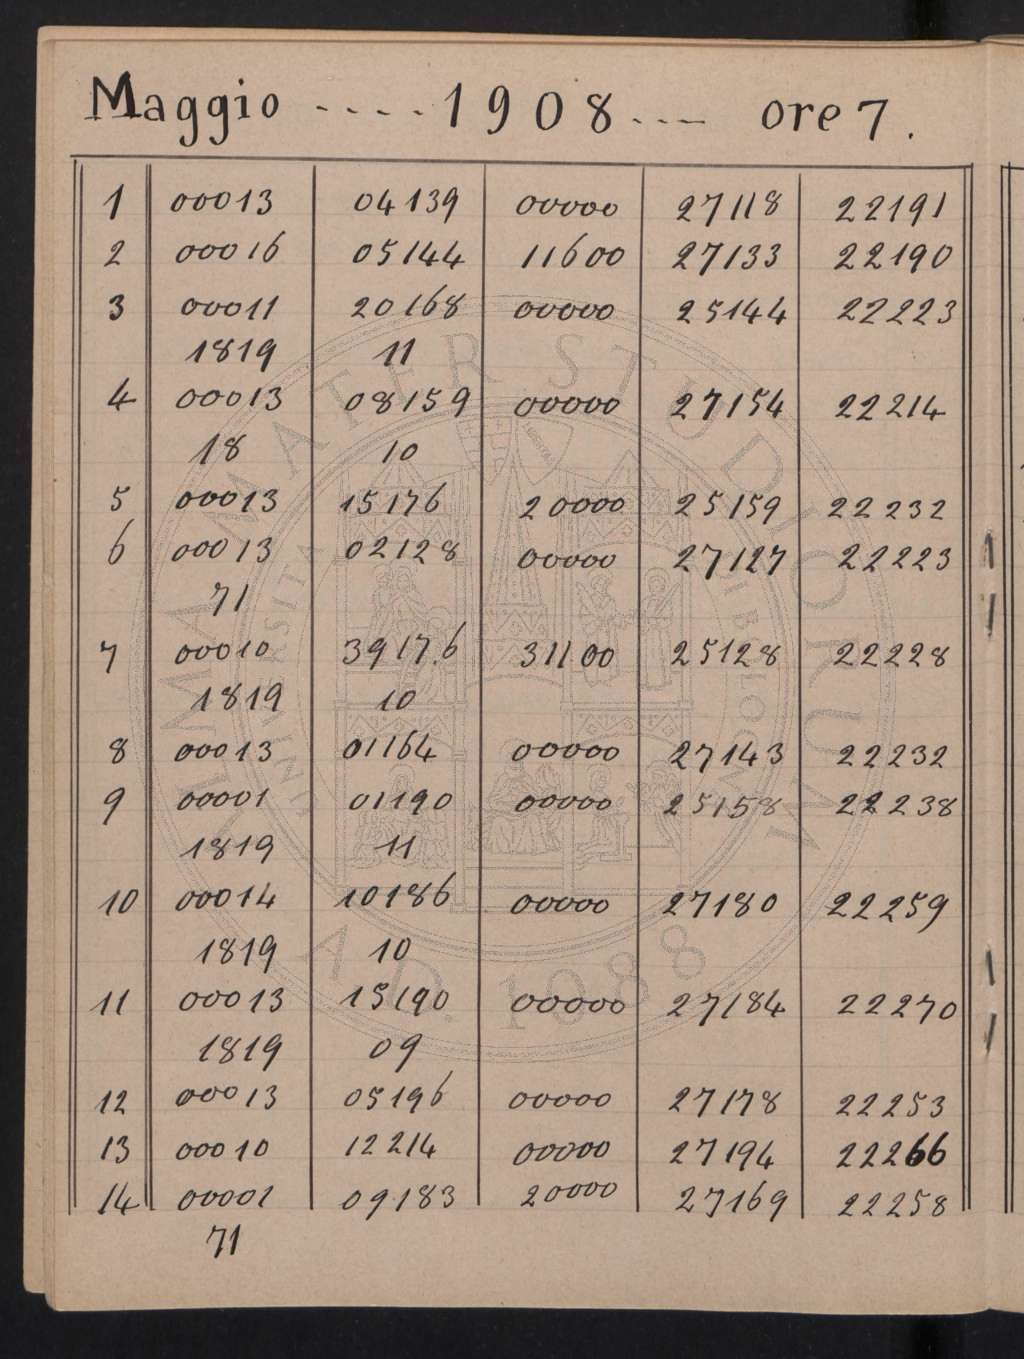 Maggio ---- 1908 ---- ore 7.
1 00013 04139 00000 27118 22191
2 00016 05144 11600 27133 22190
3 00011 20168 00000 25144 22223
1819 11
4 00013 08159 00000 27154 22214
18 10
5 00013 15176 20000 25159 22232
6 00013 02128 00000 27127 22223
71
7 00010 39176 31100 25128 22228
1819 10
8 00013 01164 00000 27143 22232
9 00001 01190 00000 25158 22238
1819 11
10 00014 10186 00000 27180 22259
1819 10
11 00013 15190 00000 27184 22270
1819 09
12 00013 05196 00000 27178 22253
13 00010 12214 00000 27194 22266
14 00001 09183 20000 27169 22258
71
ALMA MATER STUDIORUM
A.D. 1088